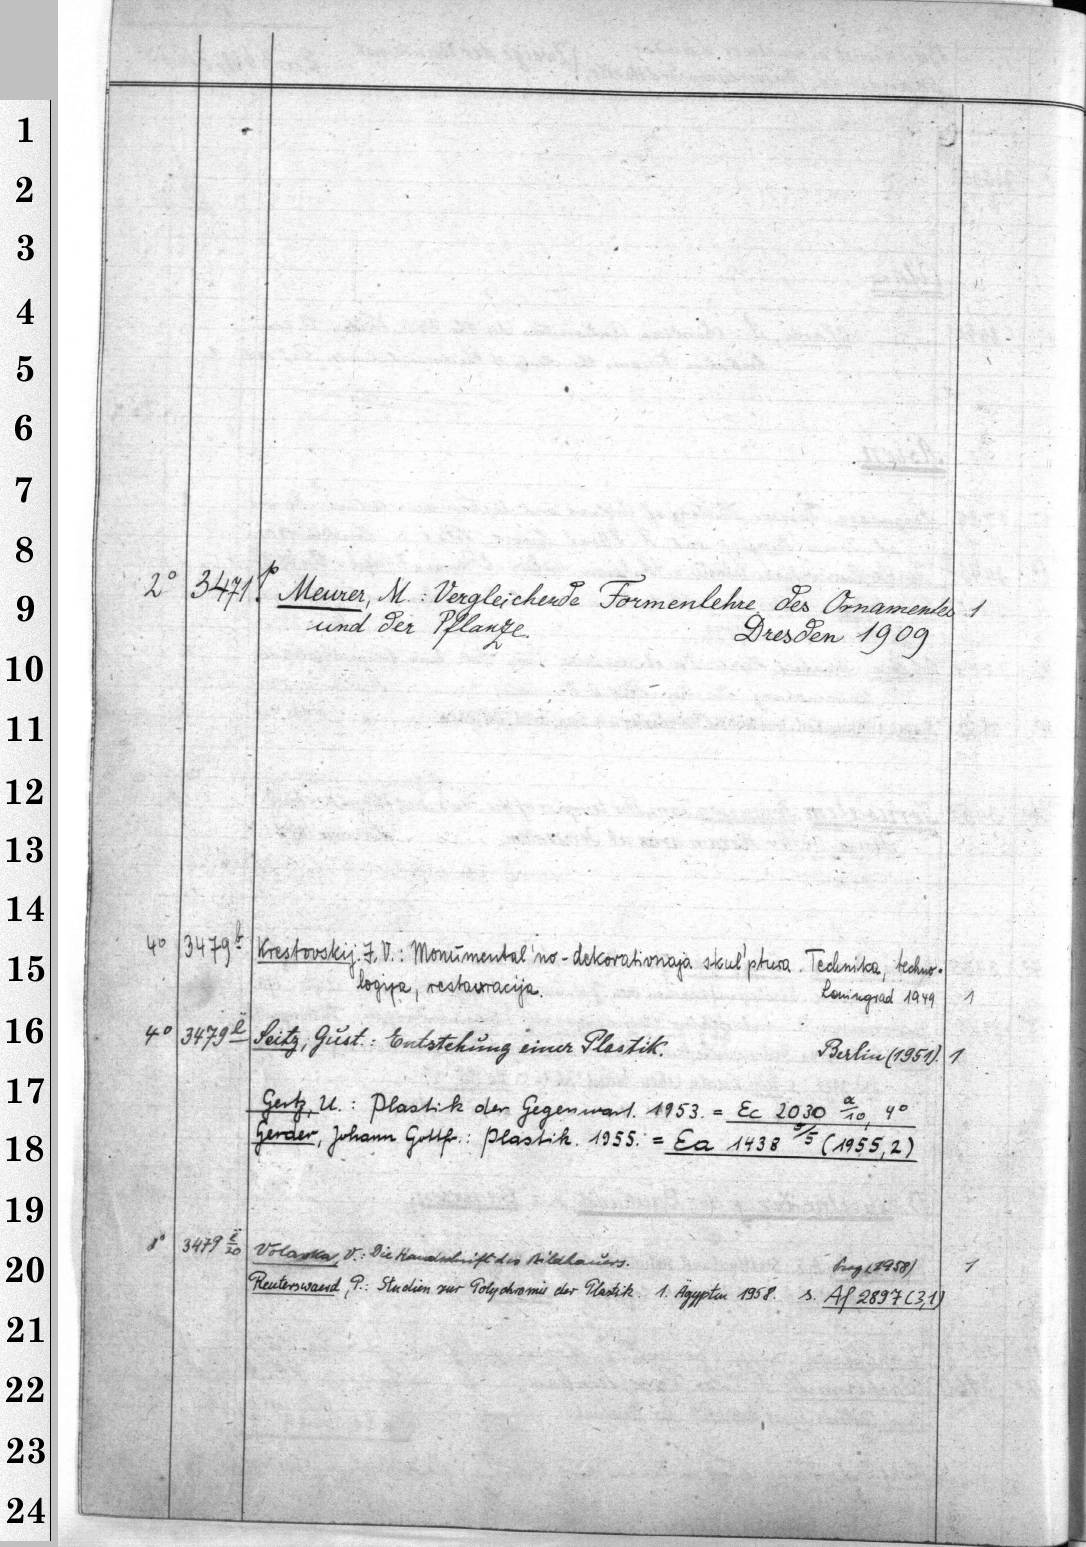 1
2
3
4
5
6
7
8
2° 3471 p Meurer, M.: Vergleichende Formenlehre des Ornamentes 1
9
und der Pflanze. Dresden 1909
10
11
12
13
14
4° 3479 b Krestovskij, I. V.: Monumental'no-dekorativnaja skul'ptura. Technika, techno-
15
logija, restavracija. Leningrad 1949 1
16
4° 3479 Seitz, Gust.: Entstehung einer Plastik. Berlin (1951). 1
17
Gertz, U.: Plastik der Gegenwart. 1953. = Ec 2030 a/10, 4°
18
Gerder, Johann Gottfr.: Plastik. 1955. = Ea 1438 5/5 (1955,2)
19
8° 3479 Volavka, V.: Die Handschrift des Bildhauers. Prag (1958) 1
20
Reuterswaerd, P.: Studien zur Polychromie der Plastik. 1. Ägypten 1958. s. Af 2897 (3,1)
21
22
23
24